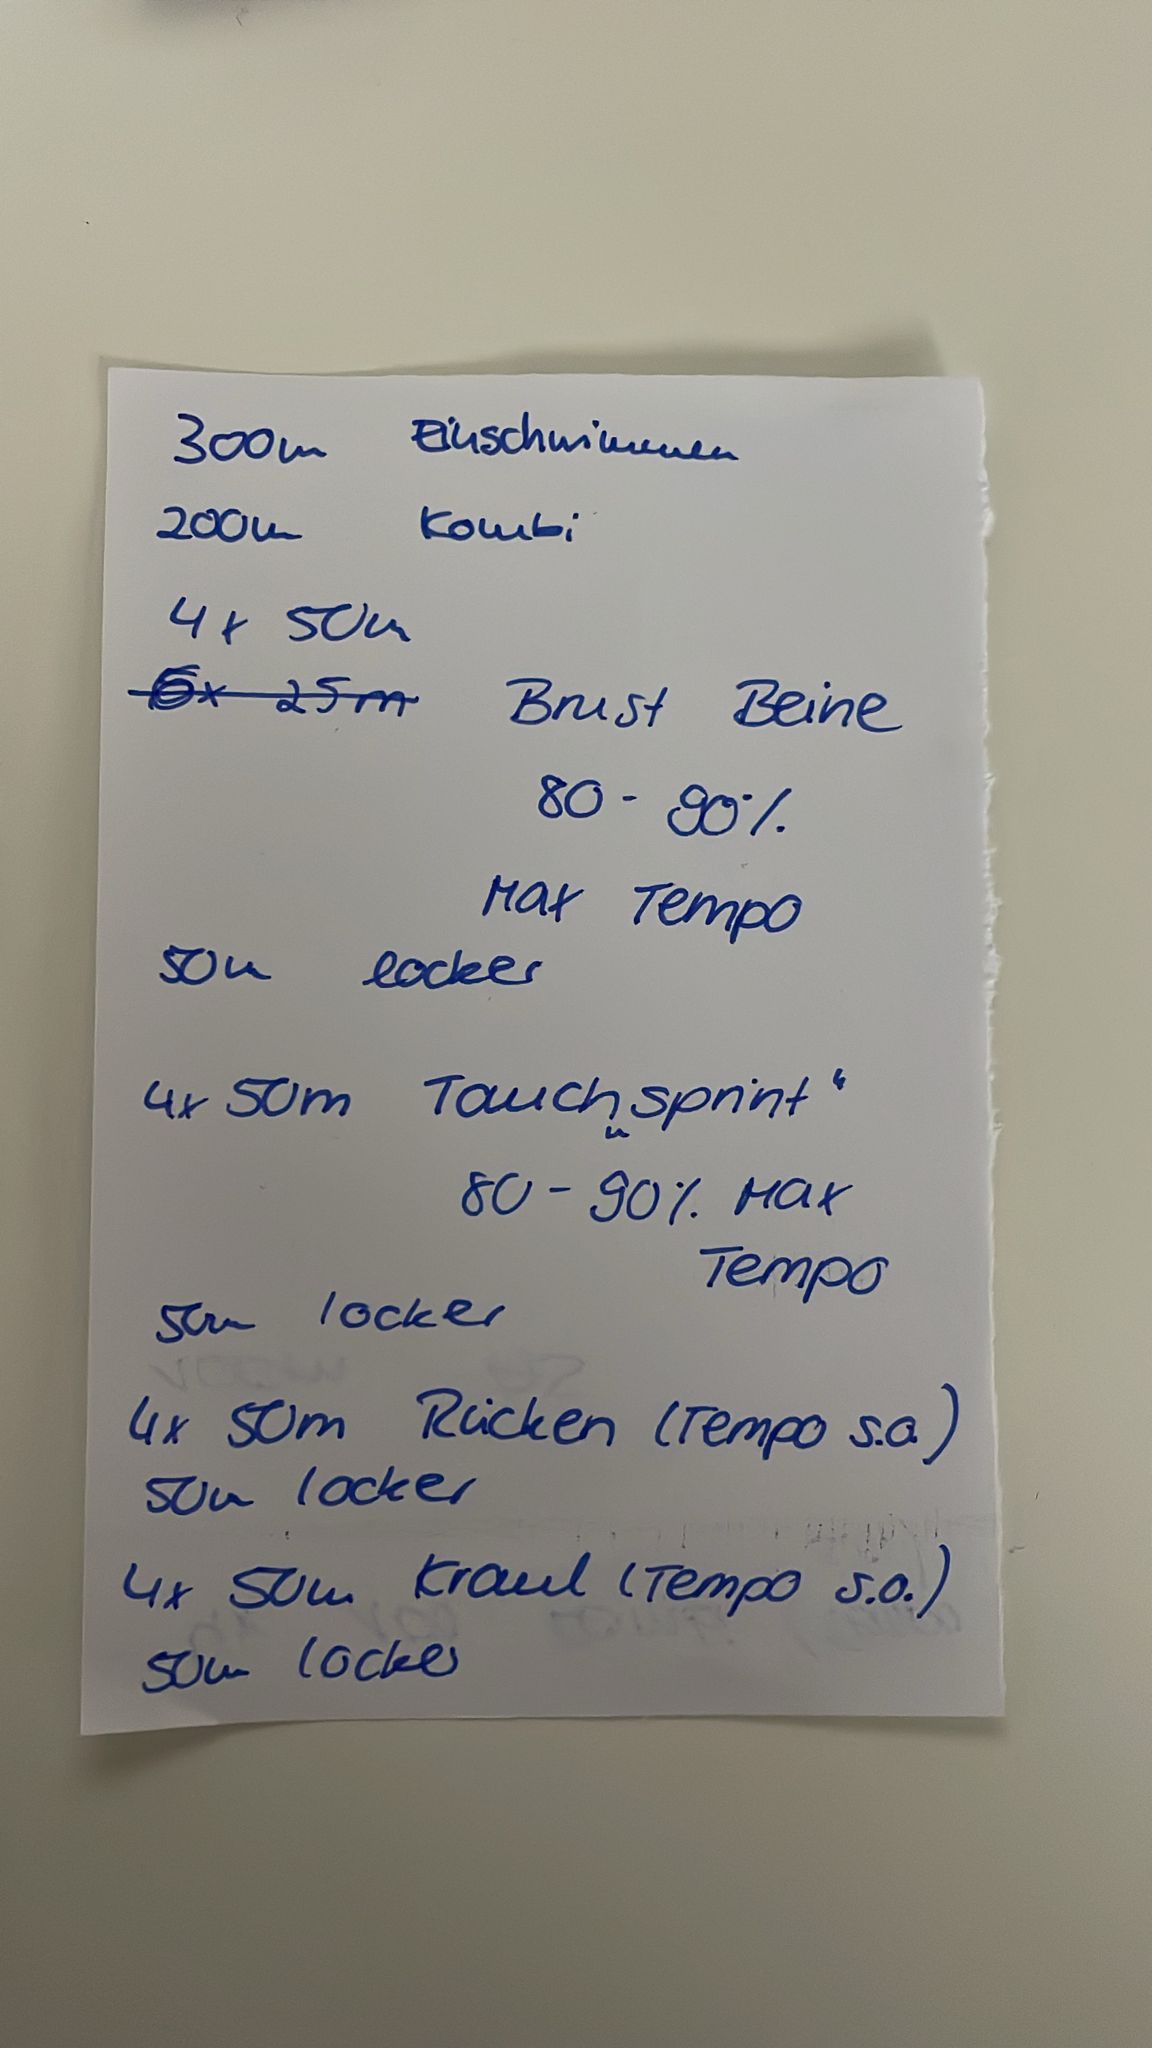 300m Einschwimmen
200m Kombi
4x 50m
6x 25m Brust Beine
80 - 90%
Max Tempo
50m locker
4x 50m Tauch„sprint“
80 - 90% Max
Tempo
50m locker
4x 50m Rücken (Tempo s.o.)
50m locker
4x 50m Kraul (Tempo s.o.)
50m locker